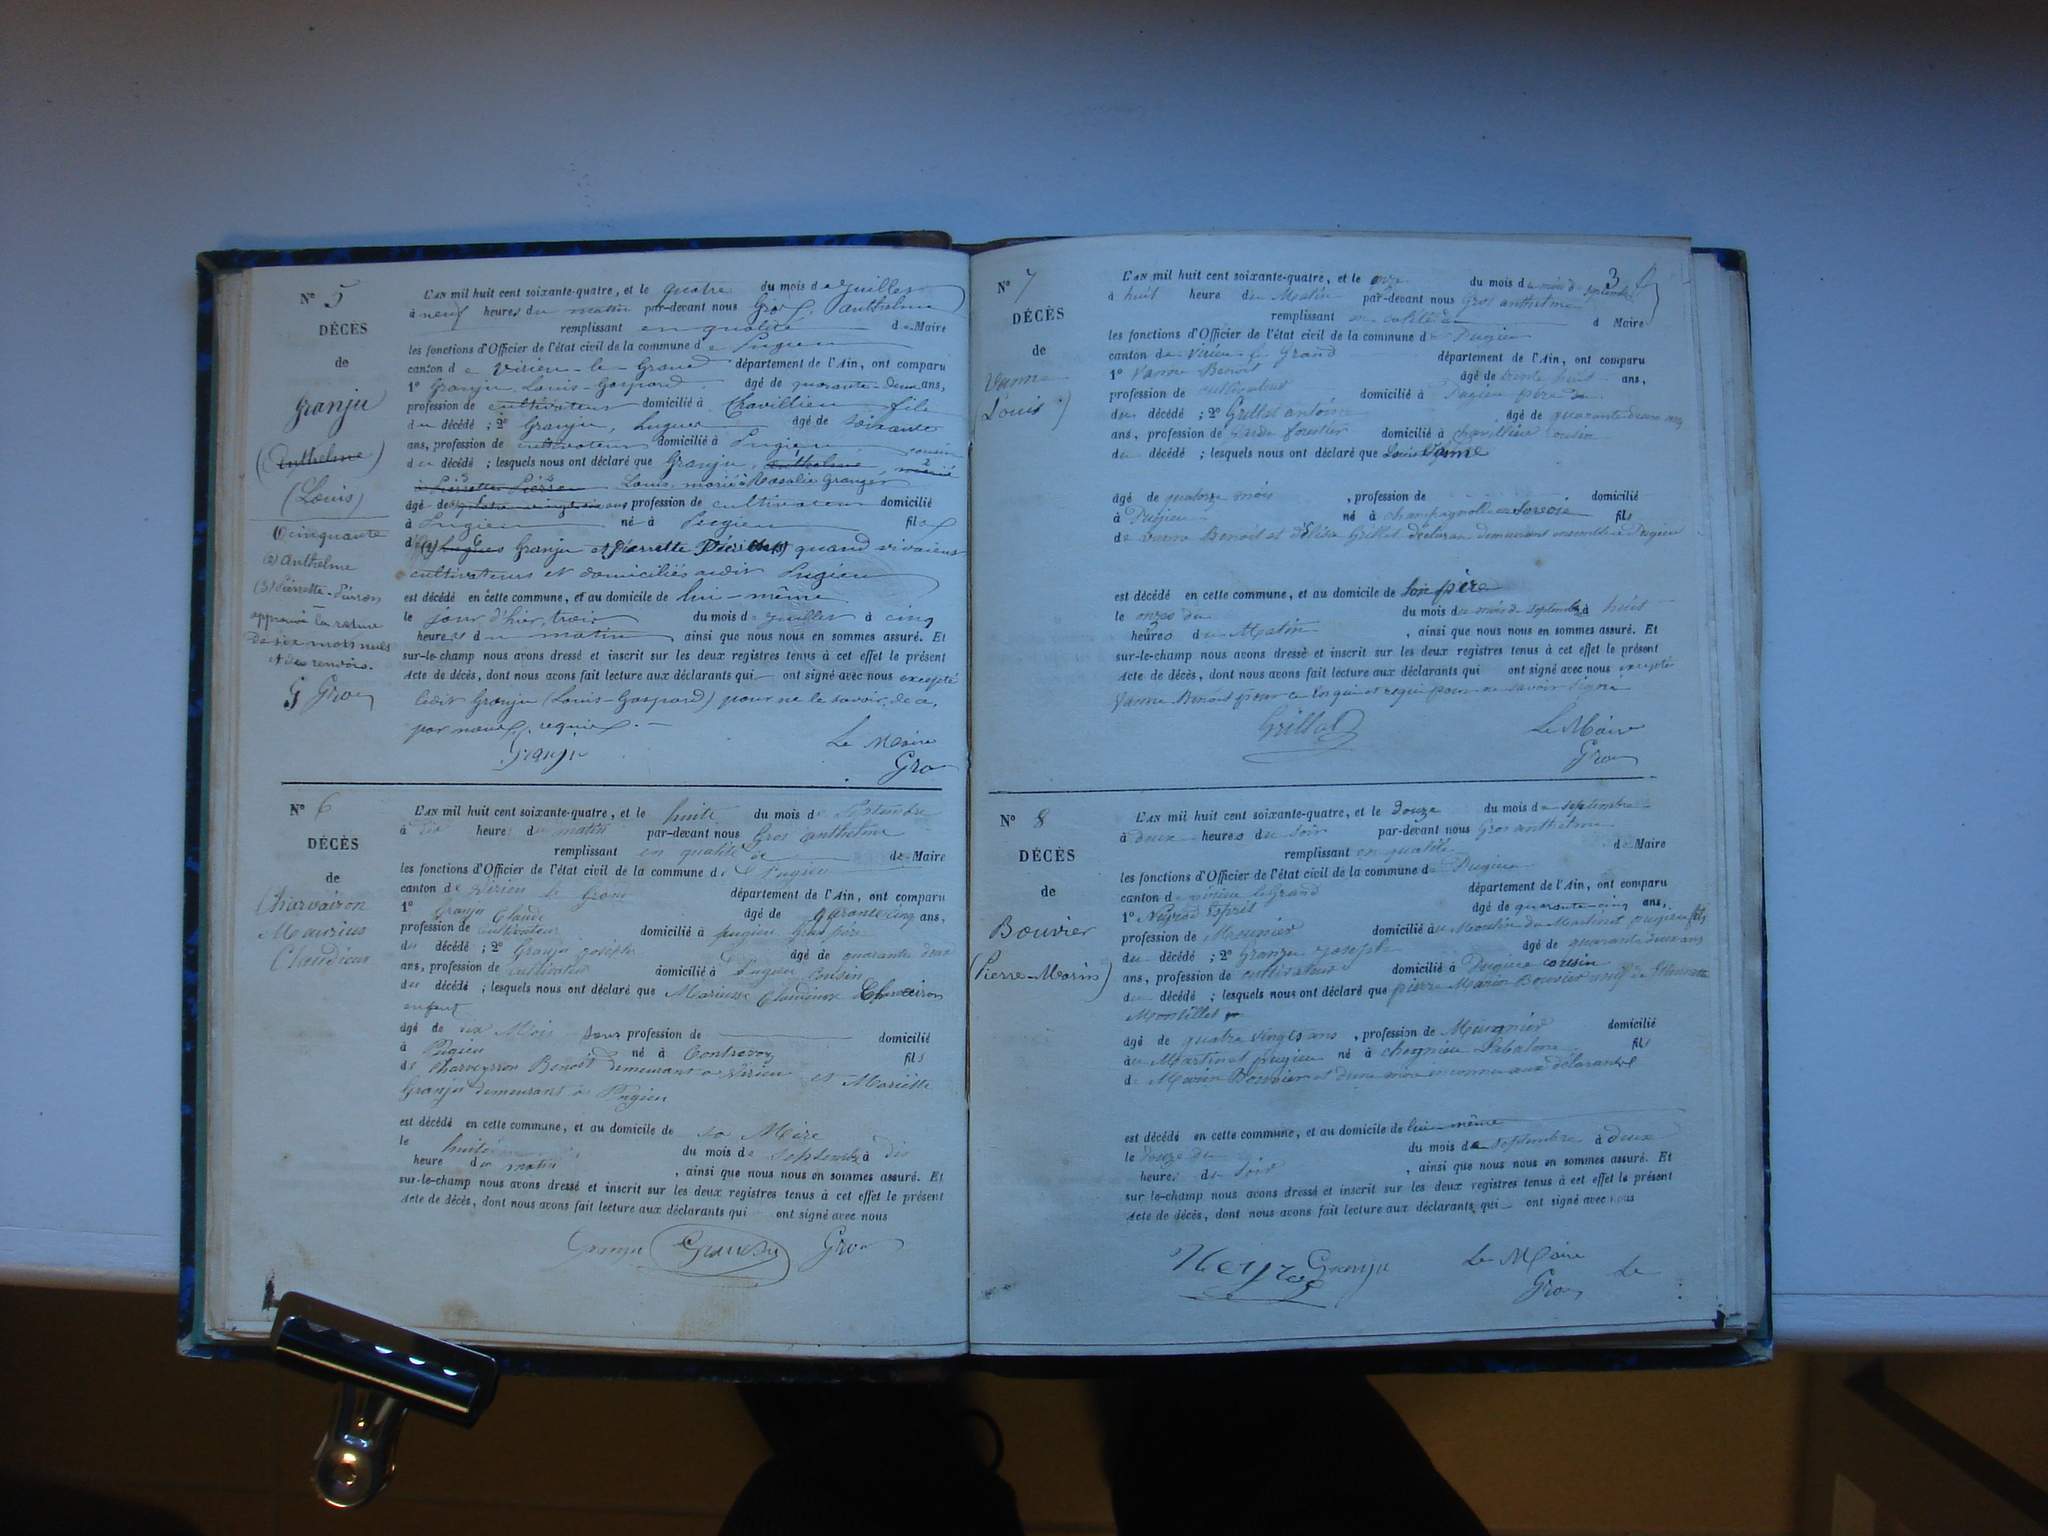 N° 5
DÉCÈS
de
Granju
(Anthelme)
(Louis)
Cinquante
(2) Anthelme
(3) Pierrette Pierron
approuvé la rature
de six mots nuls
et des renvois.
G Gros
L'AN mil huit cent soixante-quatre, et le quatre du mois de juillet
à neuf heures du matin par-devant nous Gros, Anthelme
remplissant en qualité de Maire
les fonctions d'Officier de l'état civil de la commune de Pugieu
canton de Virieu-le-Grand département de l'Ain, ont comparu
1° Granju Louis-Gaspard âgé de quarante-deux ans,
profession de cultivateur domicilié à Chavillieu fils
du décédé ; 2° Granju, Hugues âgé de soixante
ans, profession de cultivateur domicilié à Pugieu cousin
du décédé ; lesquels nous ont déclaré que Granju, Anthelme, marié
à Pierrette Pierron Louis, marié à Rosalie Granger
âgé de ans profession de cultivateur domicilié
à Pugieu né à Pugieu fils
d' Hugues Granju et Pierrette quand vivaient
cultivateurs et domiciliés audit Pugieu
est décédé en cette commune, et au domicile de lui-même
le jour d'hier, trois du mois de juillet à cinq
heures du matin , ainsi que nous nous en sommes assuré. Et
sur-le-champ nous avons dressé et inscrit sur les deux registres tenus à cet effet le présent
acte de décès, dont nous avons fait lecture aux déclarants qui ont signé avec nous excepté
ledit Granju (Louis-Gaspard) pour ne le savoir, de ce,
par nous, requis.
Granju
Le Maire
Gros
N° 6
DÉCÈS
de
Charvairon
Maurius
Claudius
L'AN mil huit cent soixante-quatre, et le huite du mois de Septembre
à dix heures du matin par-devant nous Gros anthelme
remplissant en qualité de de Maire
les fonctions d'Officier de l'état civil de la commune de Pugieu
canton de Virieu le Grand département de l'Ain, ont comparu
1° Granju Claude âgé de quarante cinq ans,
profession de Cultivateur domicilié à pugieu Grand père
du décédé ; 2° Granju joseph âgé de quarante deux
ans, profession de cultivateur domicilié à Pugieu Cousin
du décédé ; lesquels nous ont déclaré que Mariusse Claudiuse
enfant
âgé de six Mois sans profession de domicilié
à Pugieu né à Contrevoz fils
de Charveyrron Benoit demeurant à Virieu et Mariette
Granju demeurant à Pugieu
est décédé en cette commune, et au domicile de sa Mère
le huite du mois de Septembre à dix
heure du matin , ainsi que nous nous en sommes assuré. Et
sur-le-champ nous avons dressé et inscrit sur les deux registres tenus à cet effet le présent
acte de décès, dont nous avons fait lecture aux déclarants qui ont signé avec nous
Granju Granju Gros
3
N° 7
DÉCÈS
de
Vanne
(Louis)
L'AN mil huit cent soixante-quatre, et le onze du mois du mois de septembre
à huit heure du Matin par-devant nous Gros anthelme
remplissant en de Maire
les fonctions d'Officier de l'état civil de la commune de Pugieu
canton de Virieu le Grand département de l'Ain, ont comparu
1° Vanne Benoit âgé de trente huit ans,
profession de cultivateur domicilié à Pugieu père
du décédé ; 2° Grillet antoine âgé de quarante deux ans
ans, profession de Garde forestier domicilié à chavillieu cousin
du décédé ; lesquels nous ont déclaré que Louis Vanne
âgé de quatorze mois , profession de domicilié
à Pugieu né à Savoie fils
de Vanne Benoit et d'Elisie Grillet déclarant demeurant ensemble à Pugieu
est décédé en cette commune, et au domicile de Son père
le onze du du mois du mois de septembre à huit
heures du Matin , ainsi que nous nous en sommes assuré. Et
sur-le-champ nous avons dressé et inscrit sur les deux registres tenus à cet effet le présent
acte de décès, dont nous avons fait lecture aux déclarants qui ont signé avec nous excepté
Vanne Benoit pour ne savoir signé
Grillet
Le Maire
Gros
N° 8
DÉCÈS
de
Bouvier
(Pierre-Marin)
L'AN mil huit cent soixante-quatre, et le douze du mois de septembre
à deux heures du soir par-devant nous Gros anthelme
remplissant en qualité de Maire
les fonctions d'Officier de l'état civil de la commune de Pugieu
canton de virieu le Grand département de l'Ain, ont comparu
1° Neyrod Esprit âgé de quarante-cinq ans,
profession de Meunier domicilié au Moulin du Martinet pugieu fils
du décédé ; 2° Granju joseph âgé de quarante deux ans
ans, profession de cultivateur domicilié à Pugieu cousin
du décédé ; lesquels nous ont déclaré que pierre Marin Bouvier
Montillet
âgé de quatre vingts ans , profession de Meugnier domicilié
au Martinet pugieu né à chegnieu Labalme fils
de Marin Bouvier et d'une mère inconnue aux déclarants
est décédé en cette commune, et au domicile de lui-même
le douze du du mois de septembre à deux
heures du soir , ainsi que nous nous en sommes assuré. Et
sur-le-champ nous avons dressé et inscrit sur les deux registres tenus à cet effet le présent
acte de décès, dont nous avons fait lecture aux déclarants qui ont signé avec nous
Neyrod Granju
Le Maire
Gros
Le